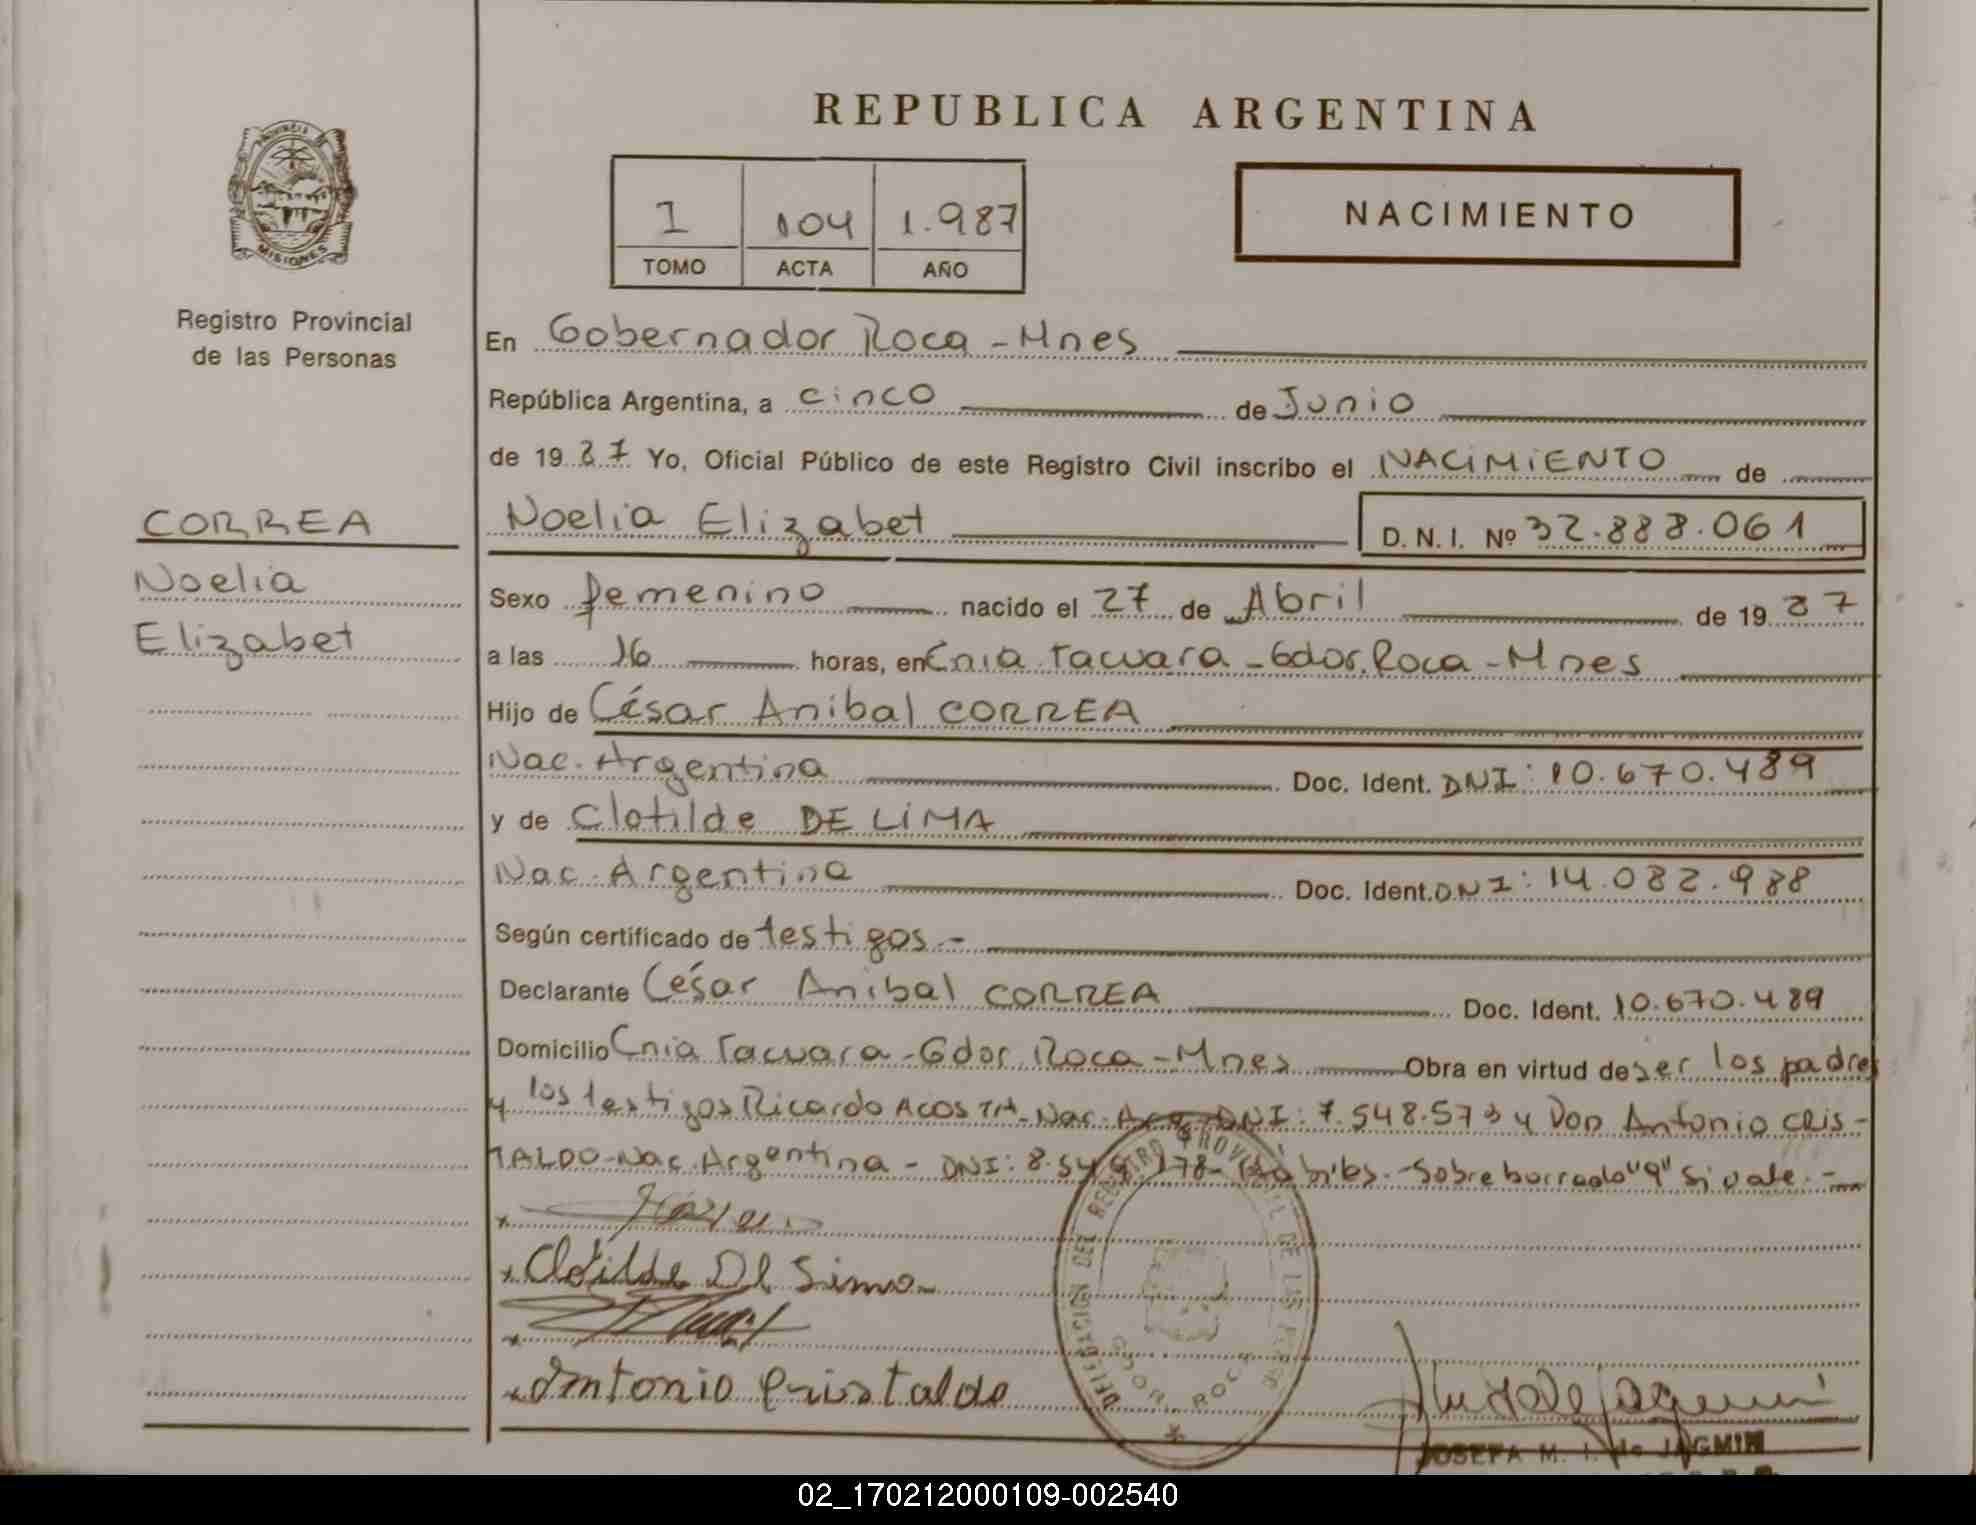 REPUBLICA ARGENTINA
PROVINCIA
MISIONES
Registro Provincial
de las Personas
1 104 1.987
TOMO ACTA AÑO
NACIMIENTO
En Gobernador Roca - Mnes
República Argentina, a cinco de Junio
de 1987 Yo, Oficial Público de este Registro Civil inscribo el NACIMIENTO de
CORREA
Noelia
Elizabet
Noelia Elizabet D. N. I. Nº 32.888.061
Sexo femenino nacido el 27 de Abril de 1987
a las 16 horas, en Cnia Tacuara - Gdor. Roca - Mnes
Hijo de César Anibal CORREA
Nac. Argentina Doc. Ident. DNI: 10.670.489
y de Clotilde DE LIMA
Nac. Argentina Doc. Ident. DNI: 14.082.988
Según certificado de testigos.-
Declarante César Anibal CORREA Doc. Ident. 10.670.489
Domicilio Cnia Tacuara - Gdor. Roca - Mnes Obra en virtud de ser los padres
y los testigos Ricardo ACOSTA - Nac. Arg. DNI: 7.548.573 y Don Antonio CRIS-
TALDO - Nac. Argentina - DNI: 178- Hábiles.- Sobreborrado "9" si vale.-
Clotilde De Lima
Antonio Cristaldo
DELEGACION DEL REGISTRO PROVINCIAL DE LAS PERS.
GDOR. ROCA
JOSEFA M. I. de JAGMIN
02_170212000109-002540